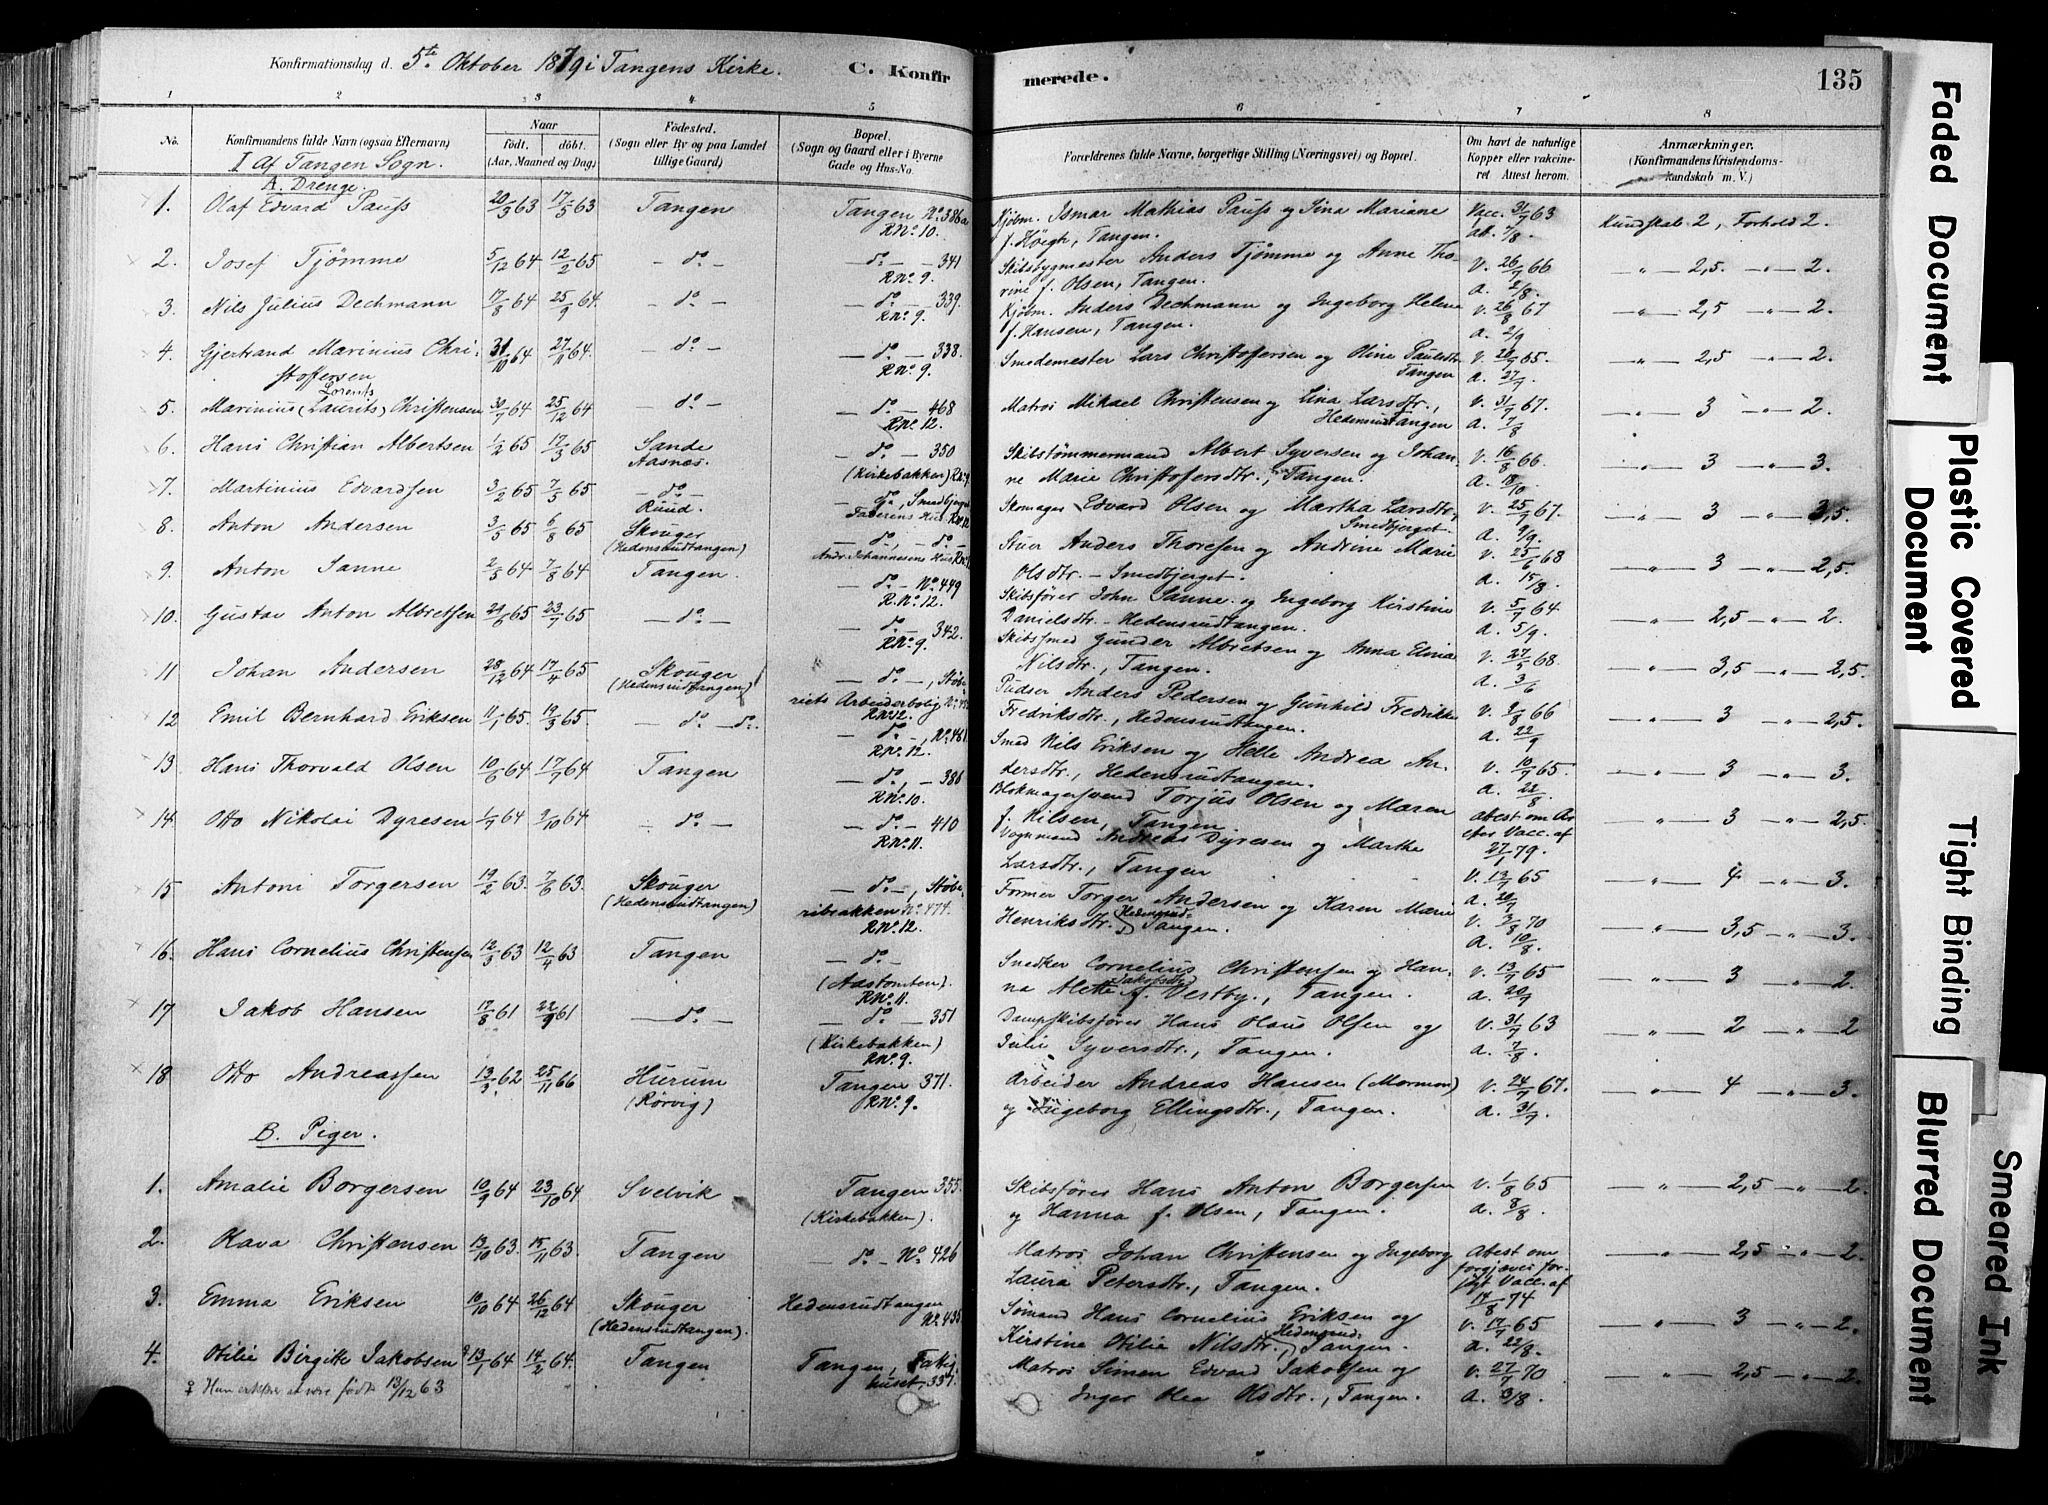 Konfirmationsdag d. 5te Oktober 1879 i Tangens Kirke. C. Konfir merede. 135
1 2 3 4 5 6 7 8
No. Konfirmandens fulde Navn (ogsaa Efternavn) Naar født. døbt. (Aar, Maaned og Dag) Fødested. (Sogn eller By og paa Landet tillige Gaard) Bopæl. (Sogn og Gaard eller i Byerne Gade og Hus-No. Forældrenes fulde Navne, borgerlige Stilling (Næringsvei) og Bopæl. Om havt de naturlige Kopper eller vaccineret Attest herom. Anmærkninger. (Konfirmandens Kristendomskundskab m. V.)
I Af Tangen Sogn.
A. Drenge.
1. Olaf Edvard Pauss 20/3 63 17/5 63 Tangen Tangen No. 386a RNo. 10. Kjøbm. Ismar Mathias Pauss og Lina Mariane f. Høegh, Tangen. Vacc. 31/7 63 att. 7/8 Kundskab 2, Forhold 2.
2. Josef Tjømme 5/12 64 12/2 65 — do — do — 341 RNo. 9. Skibsbygmester Anders Tjømme og Anne Thorine f. Olsen, Tangen. V. 26/7 66 a. 2/8. — " — 2,5. — " — 2.
3. Nils Julius Dechmann 17/8 64 25/9 64. — do — do — 339. RNo. 9. Kjøbm. Anders Dechmann og Ingeborg Helene f. Hansen, Tangen. V. 26/8 67 a. 2/9 — " — 2,5 — " — 2.
4. Gjertrand Marinius Christoffersen 31/10 64 27/11 64. — do — do — 338. RNo. 9. Smedemester Lars Christoffersen og Oline Paulsdtr. Tangen V. 20/7 65. a. 27/7 — " — 2,5 — " — 2.
5. Marinius (Laurits) Lorents Christensen 30/7 64 25/12 64 — do — do — 468 RNo. 12. Matros Mikael Christensen og Lina Larsdtr., Hedensrudtangen V. 31/7 67. a. 7/8 — " — 3 — " — 2.
6. Hans Christian Albertsen 1/2 65 17/3 65 Sande Aasnes. do — 350 (Kirkebakken) RNo. 9 Skibstømmermand Albert Syversen og Johanne Marie Christofersdtr., Tangen. V. 16/8 66. a. 18/10 — " — 3 — " — 3.
7. Martinius Edvardsen 3/2 65 7/5 65 — do — Ruud. do, Smedbjerget RNo. 12 Skomager Edvard Olsen og Martha Larsdtr., Smedbjerget. V. 25/7 67. a. 9/9. — " — 3 — " — 3,5.
8. Anton Andersen 3/5 65 6/8 65 Skouger (Hedensrudtangen) do —, — do — Andr. Johannesens Hus Stuer Anders Thoresen og Andrine Marie Olsdtr. — Smedbjerget. V. 25/6 68 a. 15/8. — " — 3 — " — 2,5.
9. Anton Sanne 2/5 64 7/8 64 Tangen. — do — No. 449 R.No. 12. Skibsfører John Sanne og Ingeborg Kirstine Danielsdtr. — Hedensrudtangen. V. 5/7 64 a. 5/9. — " — 2,5 — " — 2.
10. Gustav Anton Albretsen 21/6 65 23/7 65 — do — do — 342. RNo. 9. Skibssmed Gunder Albretsen og Anna Elina Nilsdtr., Tangen. V. 27/5 68. a. 3/6 — " — 3,5 — " — 2,5.
11 Johan Andersen 28/12 64 17/4 65 Skouger (Hedensrudtangen) — do —, Støberiets Arbeiderbolig RNo. 12. Pudser Anders Pedersen og Gunhild Fredrikke Fredriksdtr., Hedensrudtangen. V. 2/8 66 a. 22/9 — " — 3 — " — 2,5.
12 Emil Bernhard Eriksen 11/1 65. 19/3 65. — do — do. do —, No. 481. RNo. 12. Smed Nils Eriksen og Helle Andrea Andersdtr., Hedensrudtangen. V. 10/7 65. a. 22/8. — " — 3 — " — 3.
13 Hans Thorvald Olsen 10/6 64 17/7 64 Tangen — do —, — 386 RNo. 10. Blokmagersvend Torjus Olsen og Maren f. Nilsen, Tangen. — " — 3 — " — 2,5.
14. Otto Nikolai Dyresen 1/7 64 2/10 64 — do — — do — 410 RNo. 11. Vognmand Andreas Dyresen og Marthe Larsdtr., Tangen V. 13/7 65 a. 20/7 — " — 4 — " — 3.
15 Antoni Torgersen 19/2 63. 7/6 63. Skouger (Hedensrudtangen) — do —, Støberibakken No. 474. RNo. 12. Former Torger Andersen og Karen Marie Henriksdtr. Hedensrud- Tangen. V. 2/8 70 a. 10/8. — " — 3,5 — " — 3.
16. Hans Cornelius Christensen 12/3 63 12/4 63 Tangen — do — (Aastomten). RNo. 11. Snedker Cornelius Christensen og Hanna Alette Jakobsdtr. f. Vestby, Tangen. V. 13/7 65 a. 20/7 — " — 3 — " — 2.
17 Jakob Hansen 17/8 61 22/9 61 — do — — do — 351 (Kirkebakken) RNo. 9. Dampskibsfører Hans Olaus Olsen og Julie Syversdtr., Tangen. V. 31/7 63 a. 7/8. — " — 2 — " — 2
18 Otto Andreassen 13/3 62 25/11 66 Hurum (Rørvig) Tangen 371. RNo. 9. Arbeider Andreas Hansen (Mormon) og Ingeborg Ellingsdtr., Tangen. V. 24/7 67. a. 31/7. — " — 4 — " — 3.
B. Piger.
1. Amalie Borgersen 10/9 64 23/10 64 Svelvik Tangen 355. (Kirkebakken). Skibsfører Hans Anton Borgersen og Hanna f. Olsen, Tangen. V. 1/8 65 a. 8/8. — " — 2,5 — " — 2.
2. Olava Christensen 13/10 63. 15/11 63. Tangen do — No. 426 Matros Johan Christensen og Ingeborg Laura Petersdtr., Tangen. Attest om forgjæves forsøgt Vacc. af 14/8 74 — " — 2,5 — " — 2.
3. Emma Eriksen 10/10 64 26/12 64 Skouger (Hedensrudtangen). Hedensrudtangen No. 435. Sømand Hans Cornelius Eriksen og Kirstine Otilie Nilsdtr., Hedensrud- Tangen. V. 17/7 65 a. 22/8. — " — 3 — " — 2.
4. Otilie Birgitte Jakobsen 13/1 64 14/2 64. Tangen Tangen, Fattighuset, 337. Matros Simen Edvard Jakobsen og Inger Olea Olsdtr., Tangen. V. 27/7 70 a. 3/8. — " — 2,5 — " — 2.
♀ Hun erklærer at være født 13/12 63
Faded Document
Plastic Covered Document
Tight Binding
Blurred Document
Smeared Ink